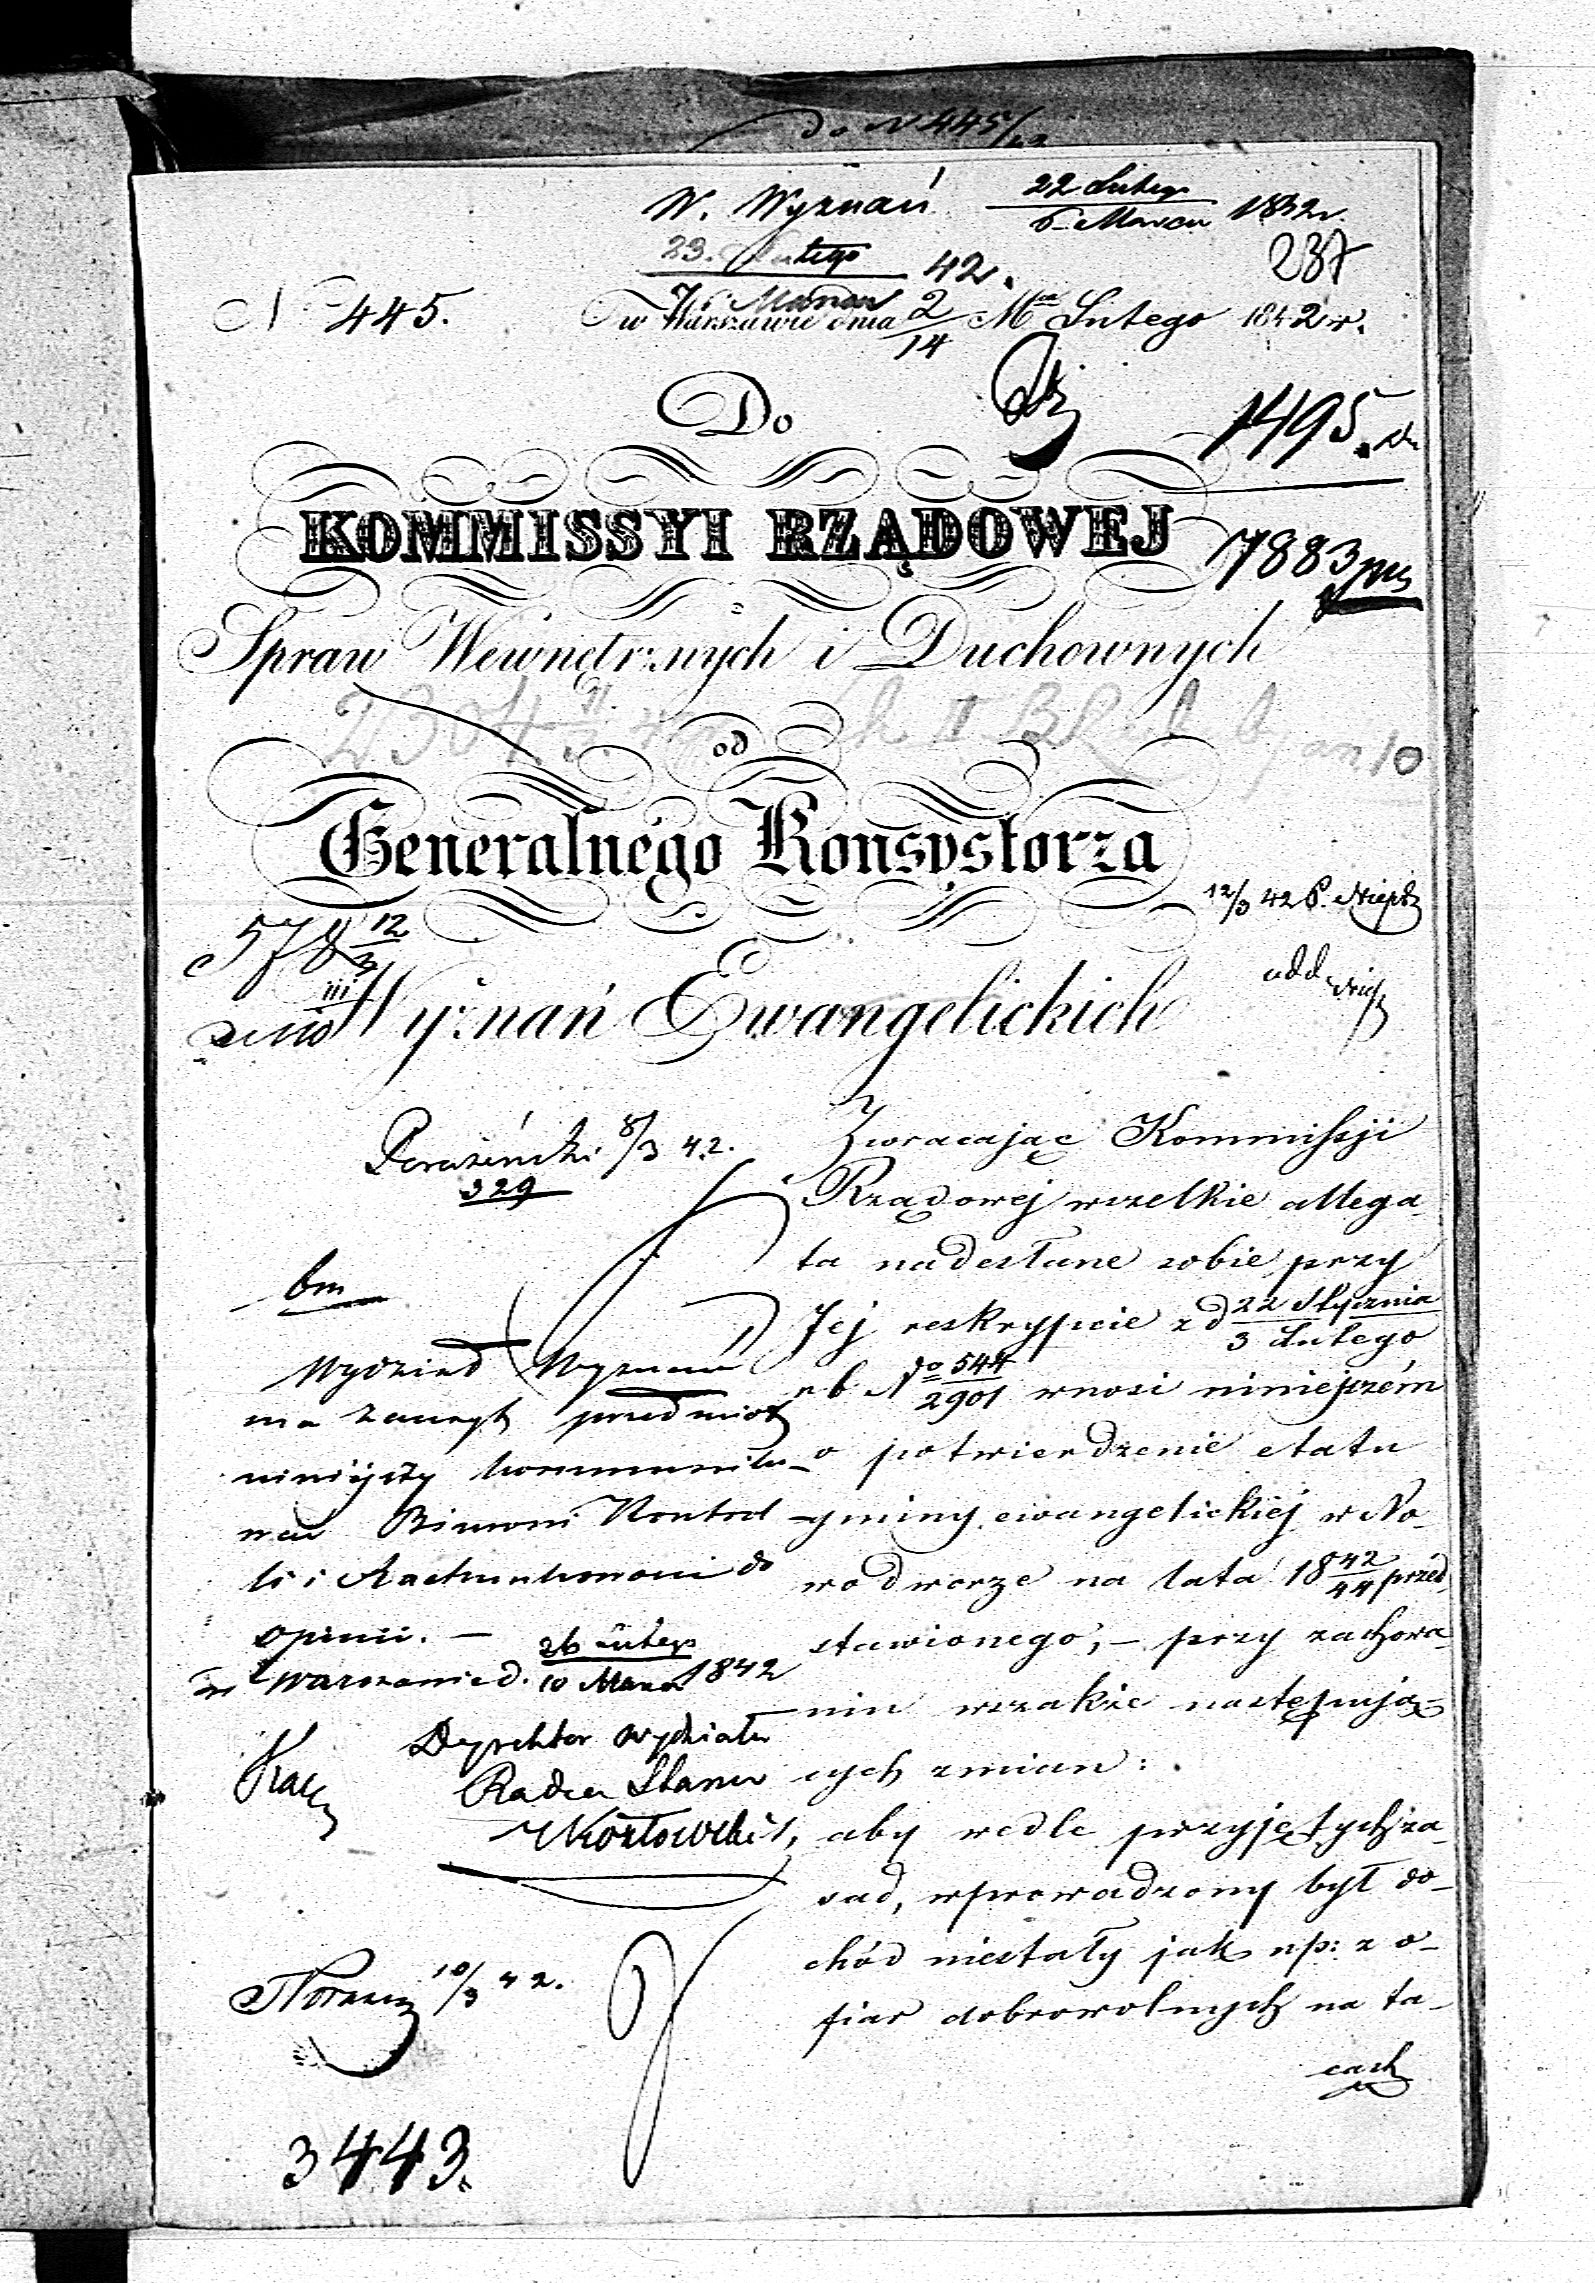 do N 445/42
W. Wyznań 22 Lutego / 6 Marca 1842 r.
23. Lutego / 7. Marca 42 r.
237
N 445.
w Warszawie dnia 2/14 Mca Lutego 1842 r.
Do
1495.
KOMMISSYI RZĄDOWEJ
7883
Spraw Wewnętrznych i Duchownych
2304
od
Generalnego Konsystorza
12/3 42 P.
578 12/3
Wyznań Ewangelickich
8/3 42.
329
Zwracając Kommissji
Rządowej wszelkie allega-
ta nadesłane sobie przy
Jej reskrypcie z d 22 Stycznia / 3 Lutego
r b No 544/2901 wnosi niniejszém
o potwierdzenie etatu
gminy ewangelickiej w No-
wodworze na lata 18 42/44 przed-
stawionego, – przy zachowa-
niu wszakże następują-
cych zmian:
1, aby wedle przyjętych za-
sad, wprowadzony był do-
chód niestały jak np: z o-
fiar dobrowolnych na ta-
cach
bm
Wydział Wyznań
ma zaszczyt przedmiot
niniejszy kommuniko-
wać Biuroni Kontrol
li i Rachunkowości do
opinii. –
w Warszawie d. 26 Lutego / 10 Marca 1842
Dyrektor Wydziału
Radca Stanu
Kozłowski
10/3 42.
3443.